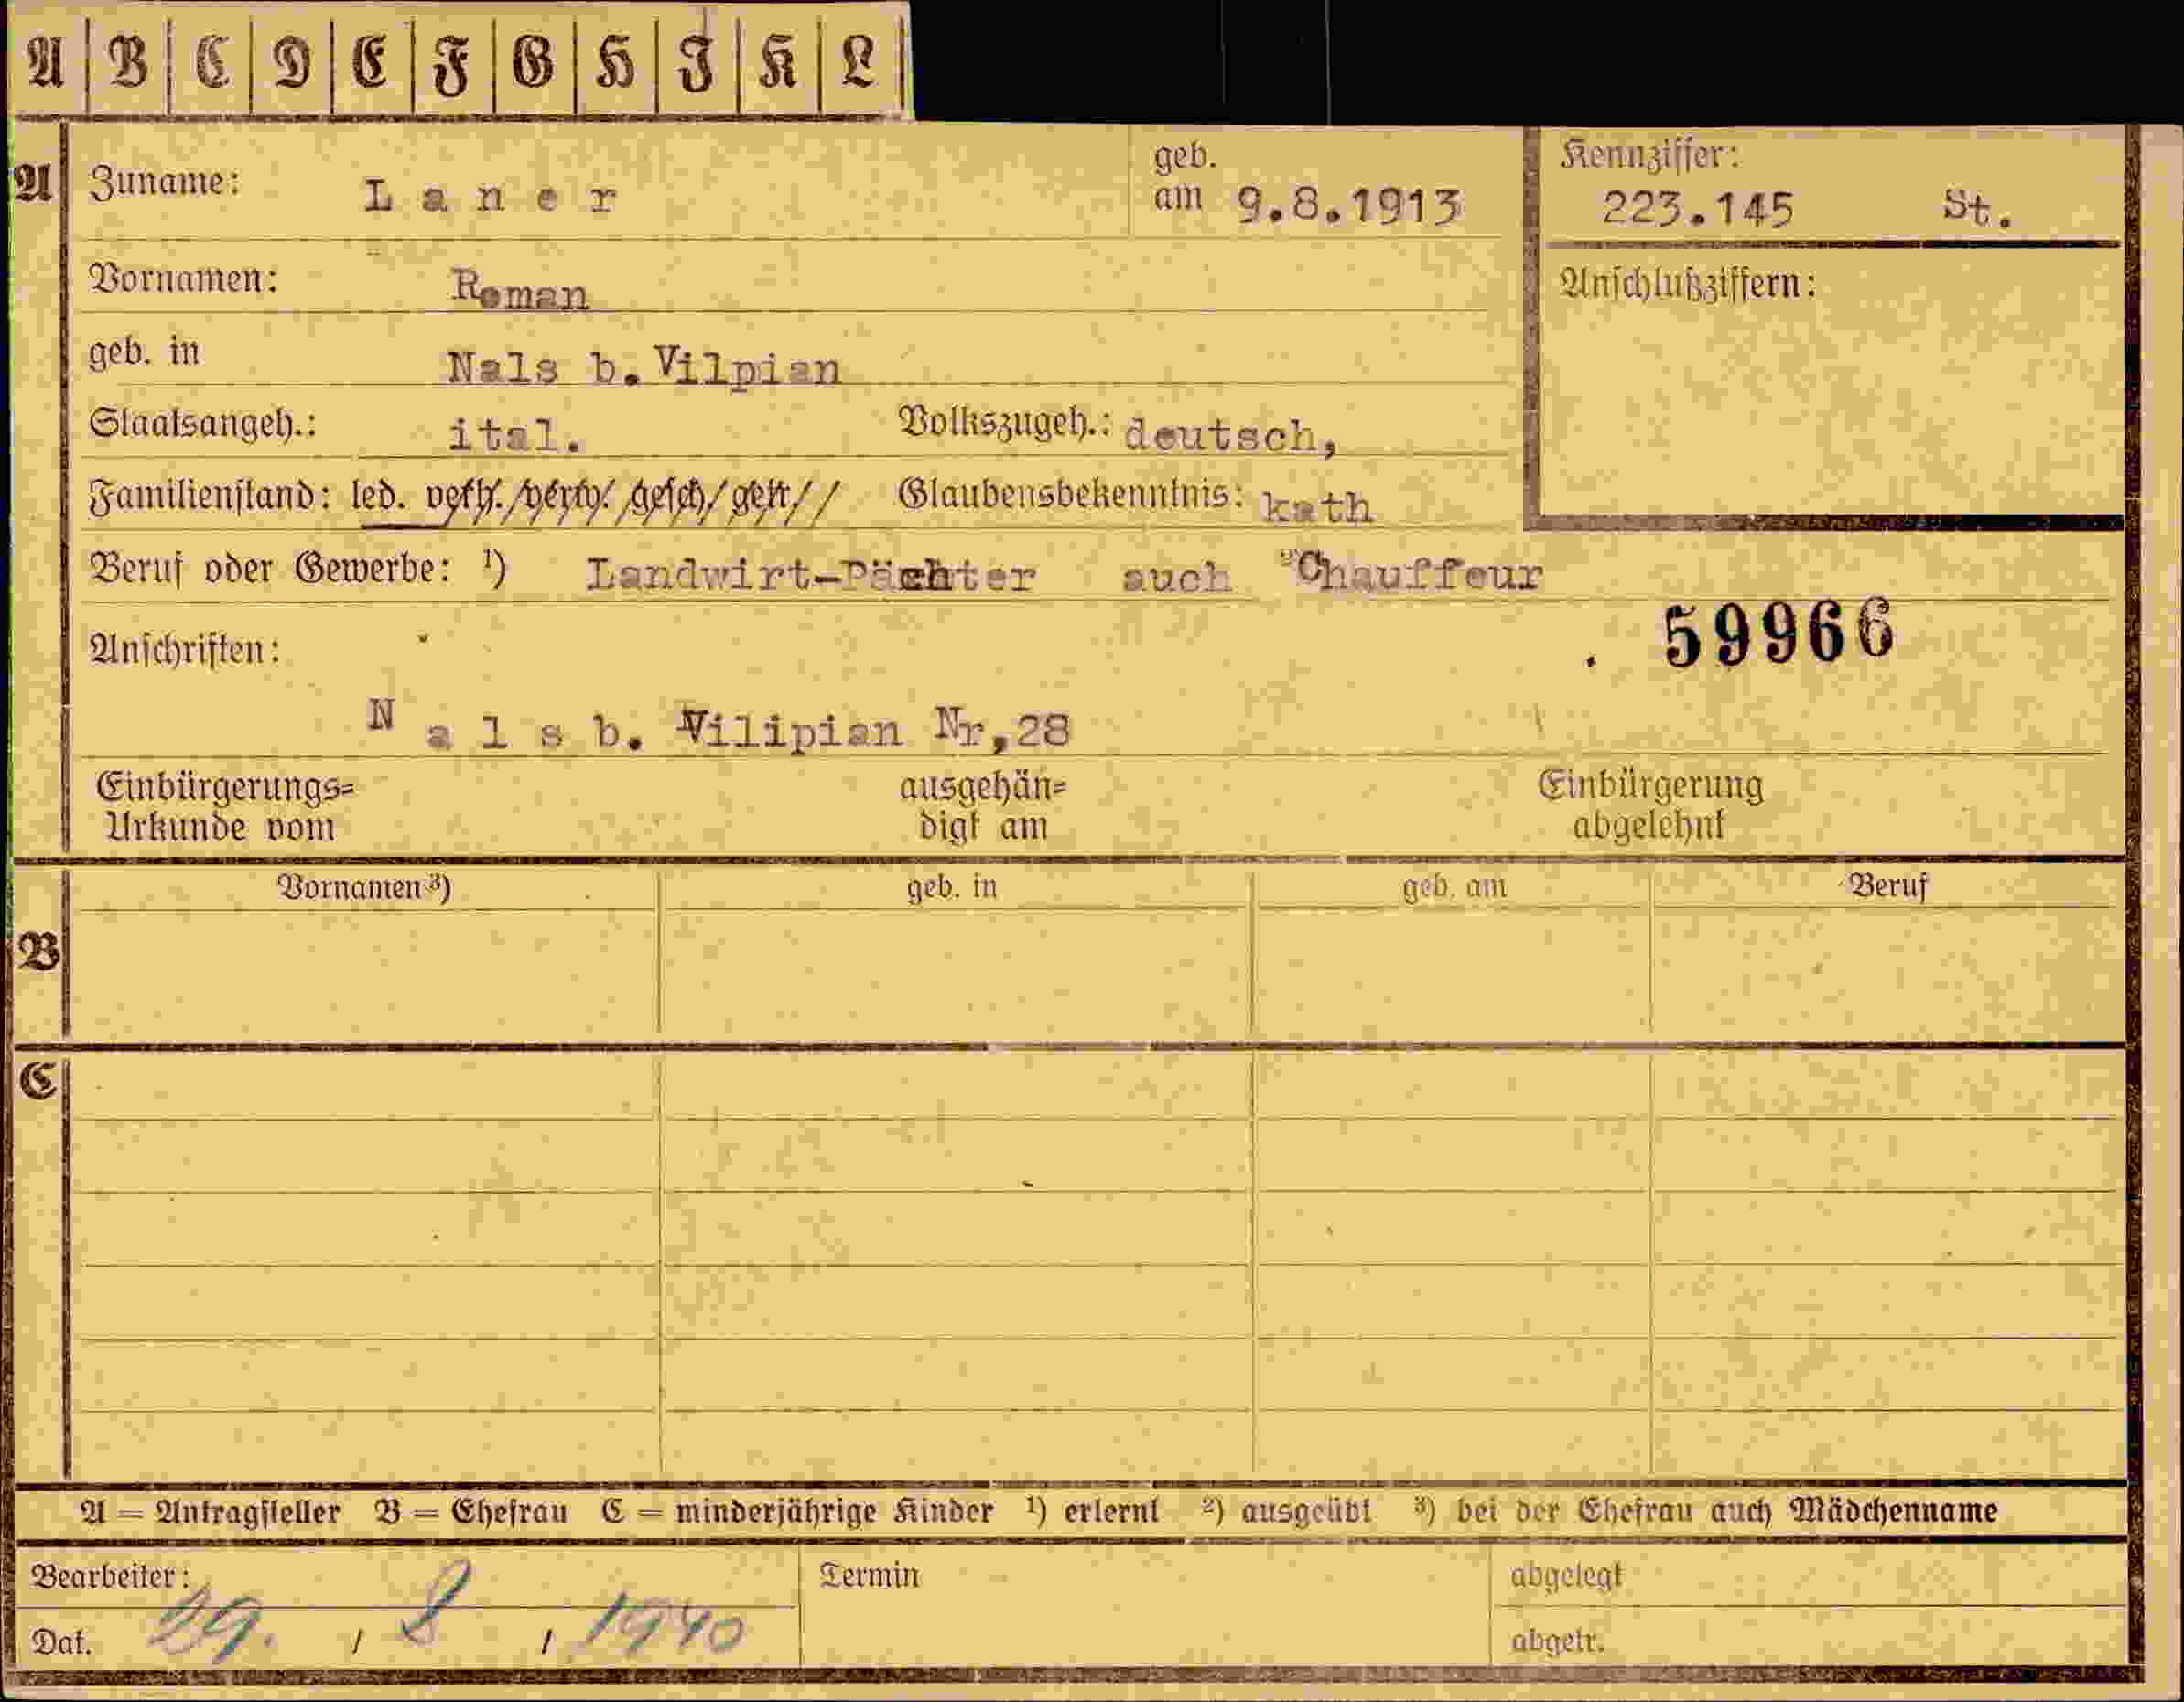 A B C D E F G H I K L
A Zuname: Laner geb. am 9.8.1913 Kennziffer: 223.145 St.
Vornamen: Roman Anschlußziffern:
geb. in Nals b. Vilpian
Staatsangeh.: ital. Volkszugeh.: deutsch,
Familienstand: led. verh. verw. gesch. getr. Glaubensbekenntnis: kath
Beruf oder Gewerbe: ¹) Landwirt-Pächter auch ²)Chauffeur
59966
Anschriften:
Nals b. Vilipian Nr,28
Einbürgerungs= ausgehän= Einbürgerung
Urkunde vom digt am abgelehnt
Vornamen ³) geb. in geb. am Beruf
B
C
A = Antragsteller B = Ehefrau C = minderjährige Kinder ¹) erlernt ²) ausgeübt ³) bei der Ehefrau auch Mädchenname
Bearbeiter: Termin abgelegt
Dat. 29. / 8 / 1940 abgetr.